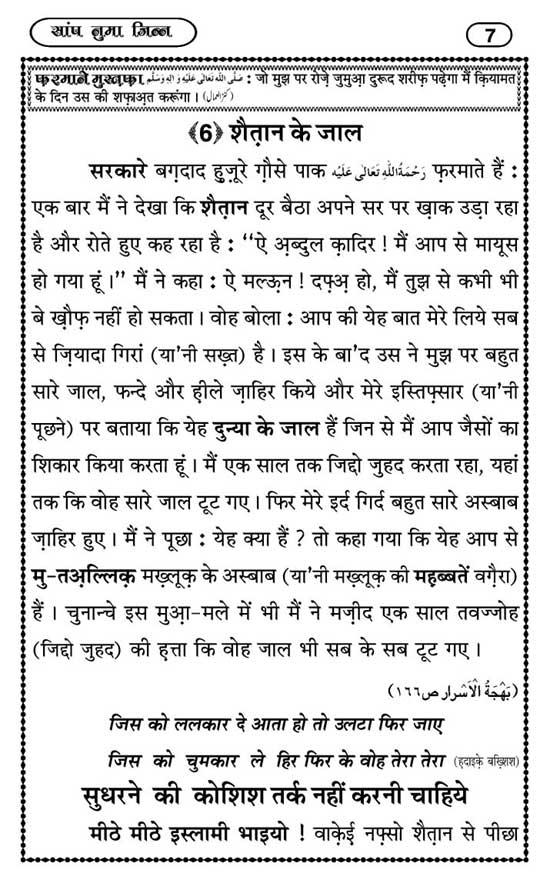 सांप नुमा जिन्न
7
फ़रमाने मुस्त़फ़ा صَلَّى اللّٰهُ تَعَالٰى عَلَيْهِ وَاٰلِهٖ وَسَلَّم : जो मुझ पर रोज़े जुमुआ़ दुरूद शरीफ़ पढ़ेगा मैं क़ियामत
के दिन उस की शफ़ाअ़त करूंगा। (کنزالعمال)
《6》 शैत़ान के जाल
सरकारे बग़दाद हुज़ूरे ग़ौसे पाक رَحْمَةُ اللّٰهِ تَعَالٰى عَلَيْهِ फ़रमाते हैं :
एक बार मैं ने देखा कि शैत़ान दूर बैठा अपने सर पर ख़ाक उड़ा रहा
है और रोते हुए कह रहा है : ‘‘ऐ अ़ब्दुल क़ादिर ! मैं आप से मायूस
हो गया हूं।’’ मैं ने कहा : ऐ मल्ऊ़न ! दफ़्अ़ हो, मैं तुझ से कभी भी
बे ख़ौफ़ नहीं हो सकता। वोह बोला : आप की येह बात मेरे लिये सब
से ज़ियादा गिरां (या'नी सख़्त) है। इस के बा'द उस ने मुझ पर बहुत
सारे जाल, फन्दे और ह़ीले ज़ाहिर किये और मेरे इस्तिफ़्सार (या'नी
पूछने) पर बताया कि येह दुन्या के जाल हैं जिन से मैं आप जैसों का
शिकार किया करता हूं। मैं एक साल तक जिद्दो जुहद करता रहा, यहां
तक कि वोह सारे जाल टूट गए। फिर मेरे इर्द गिर्द बहुत सारे अस्बाब
ज़ाहिर हुए। मैं ने पूछा : येह क्या हैं ? तो कहा गया कि येह आप से
मु-तअ़ल्लिक़ मख़्लूक़ के अस्बाब (या'नी मख़्लूक़ की मह़ब्बतें वग़ैरा)
हैं। चुनान्चे इस मुआ़-मले में भी मैं ने मज़ीद एक साल तवज्जोह
(जिद्दो जुहद) की ह़त्ता कि वोह जाल भी सब के सब टूट गए।
(بَهْجَةُ الْاَسْرار ص١٦٦)
जिस को ललकार दे आता हो तो उलटा फिर जाए
जिस को चुमकार ले हिर फिर के वोह तेरा तेरा (ह़दाइक़े बख़्शिश)
सुधरने की कोशिश तर्क नहीं करनी चाहिये
मीठे मीठे इस्लामी भाइयो ! वाक़ेई नफ़्सो शैत़ान से पीछा